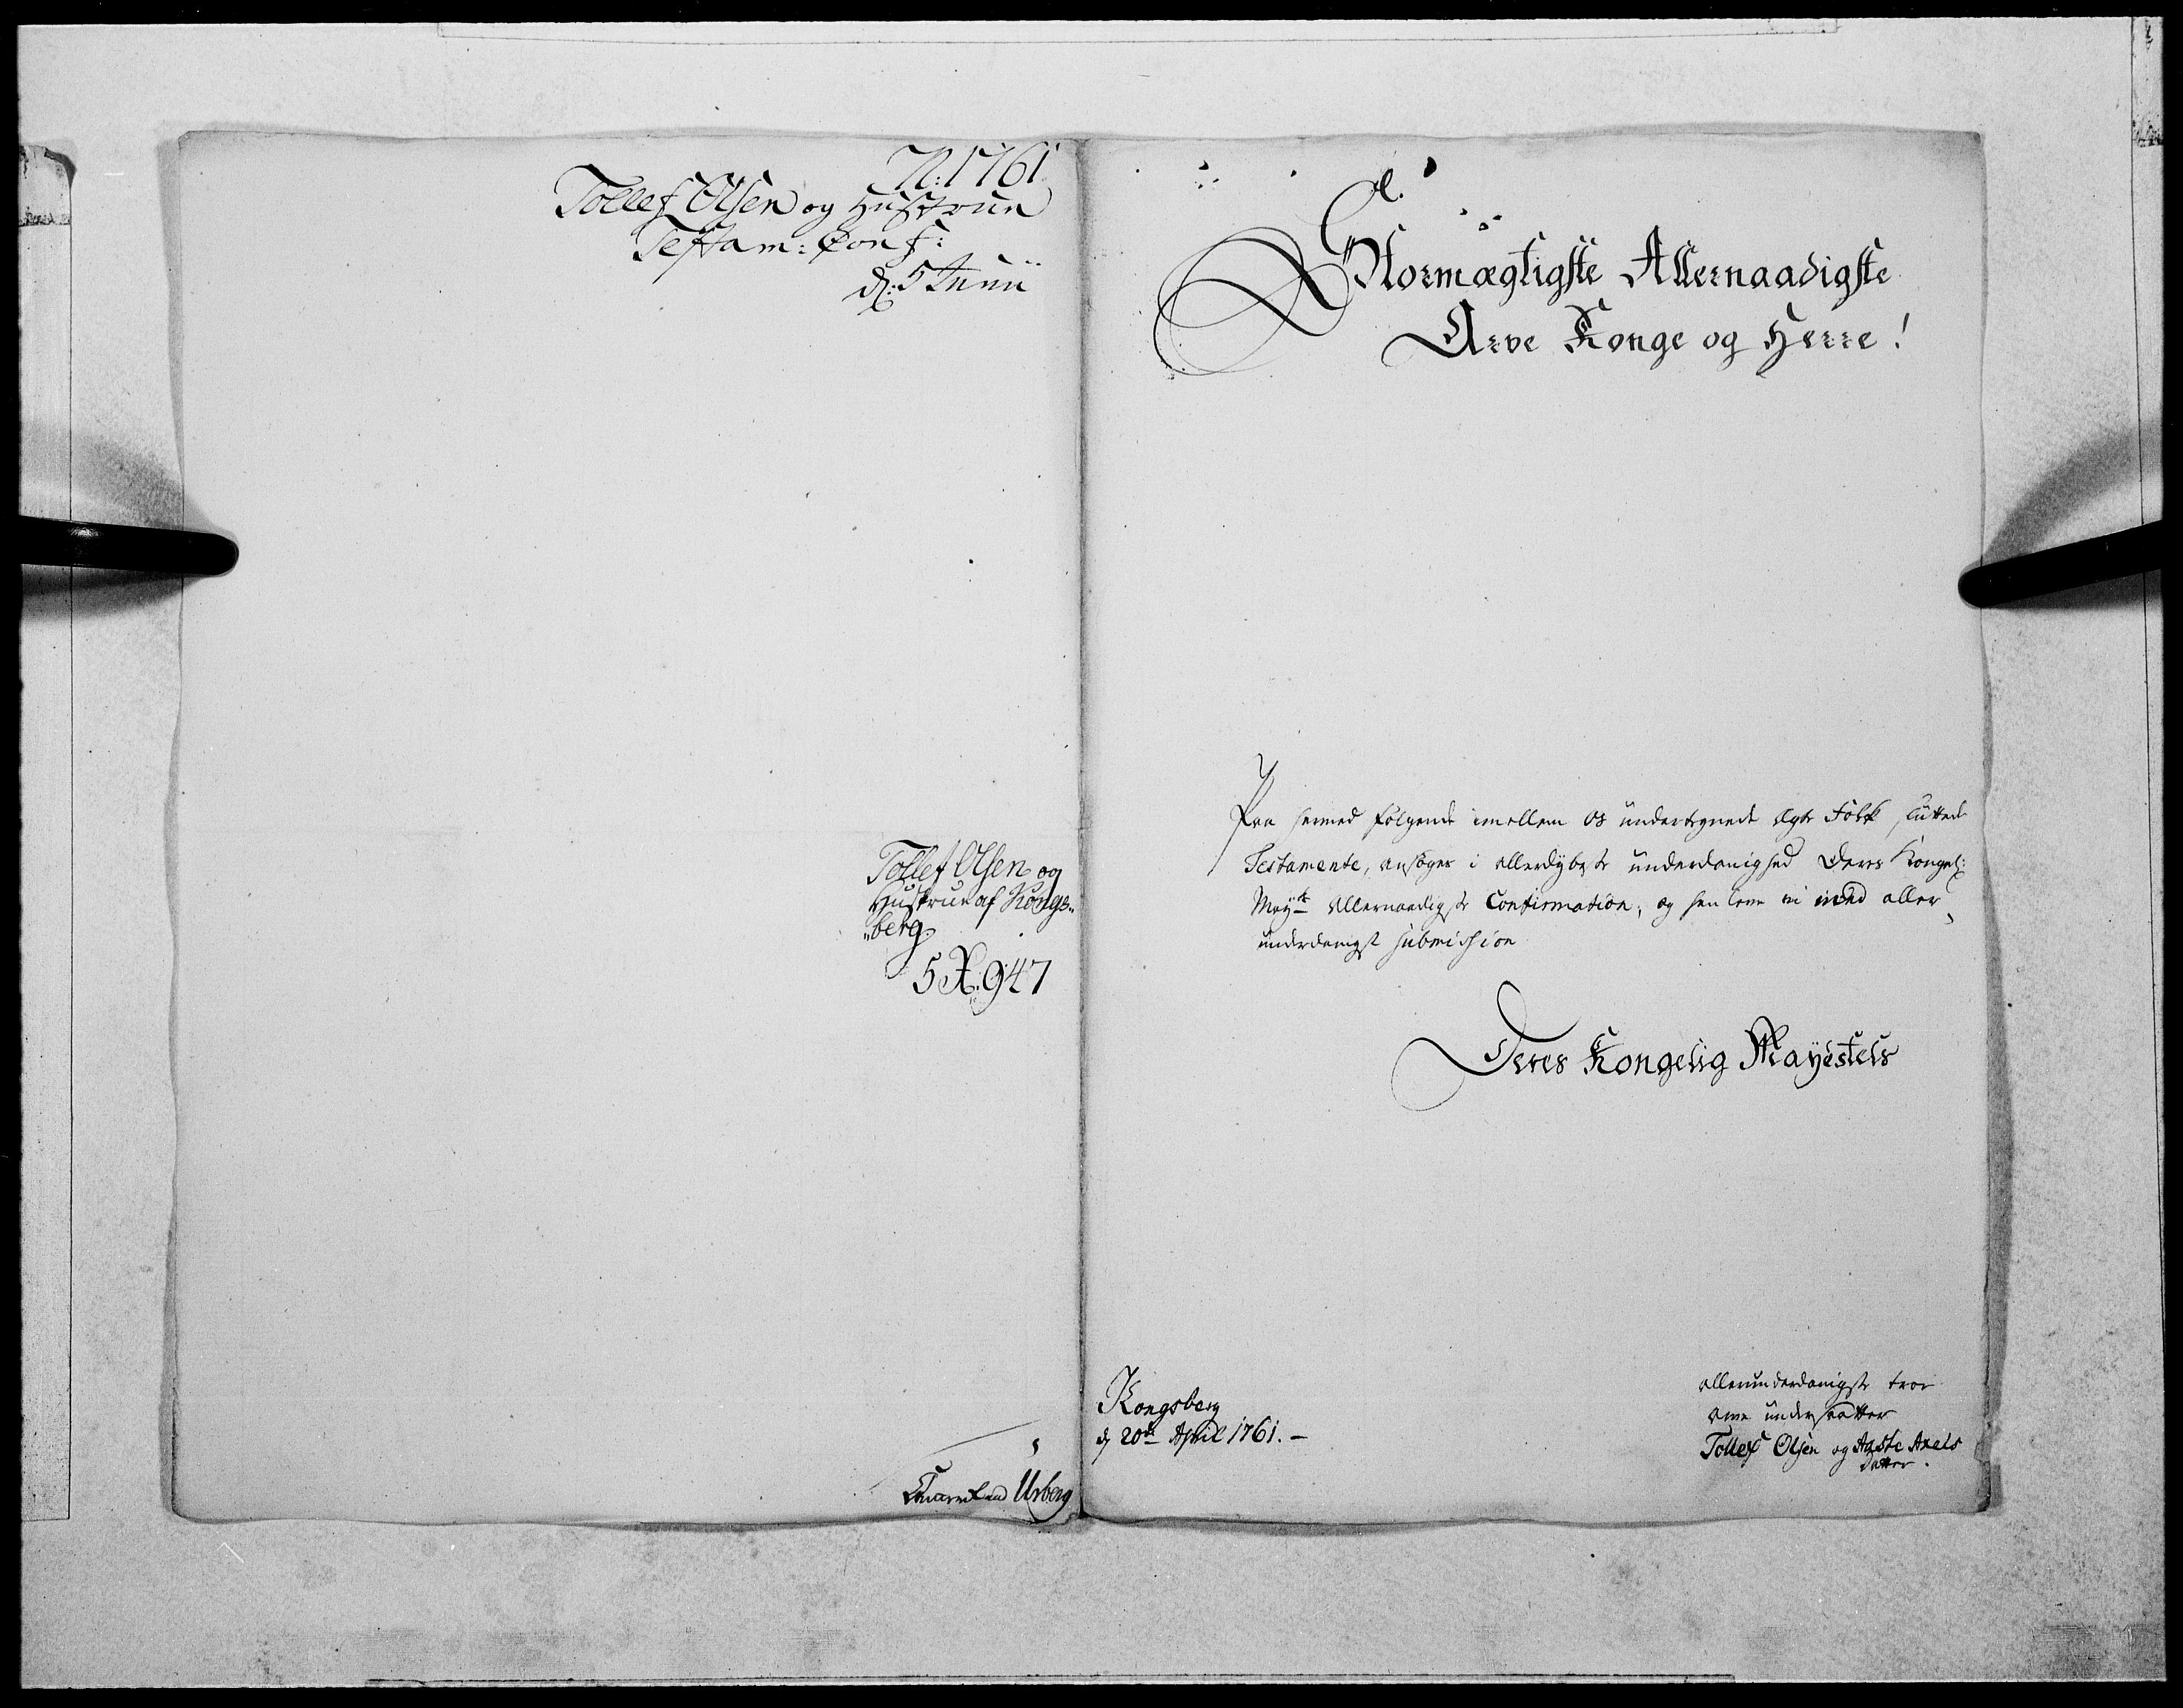 N: 1761
Tollef Olsen og Hustrue
Testam: Conf:
d: 5 Junii
Tollef Olsen og
Hustrue af Kongs„
„berg.
5 X: 947
Urberg
Stormægtigste Allernaadigste
Arve Konge og Herre!
Paa hermed følgende imellem os undertegnede Ægte Folk sluttede
Testamente, ansøges i allerdybeste underdanighed Deres Kongel:
May:ts Allernaadigste Confirmation, og henleve vi med aller
underdanigst submission
Deres Kongelig Mayestets
Kongsberg
d 20de April 1761. —
allerunderdanigste troe
Arve undersaatter
Tollef Olsen og Agste Axels
datter.